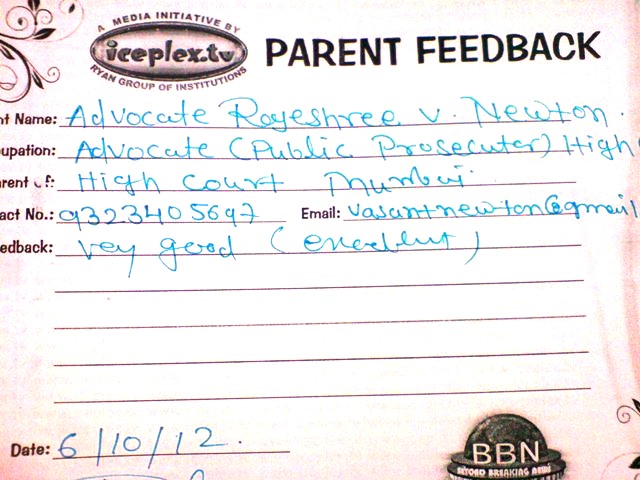 A MEDIA INITIATIVE BY
iceplex.tv
RYAN GROUP OF INSTITUTIONS
PARENT FEEDBACK
nt Name: Advocate Rajeshree V. Newton.
upation: Advocate (Public Prosecuter) High
arent of: High Court Mumbai
act No.: 9323405697 Email: vasantnewton@gmail
edback: Vey good (excellent)
Date: 6/10/12.
BBN
BEYOND BREAKING NEWS